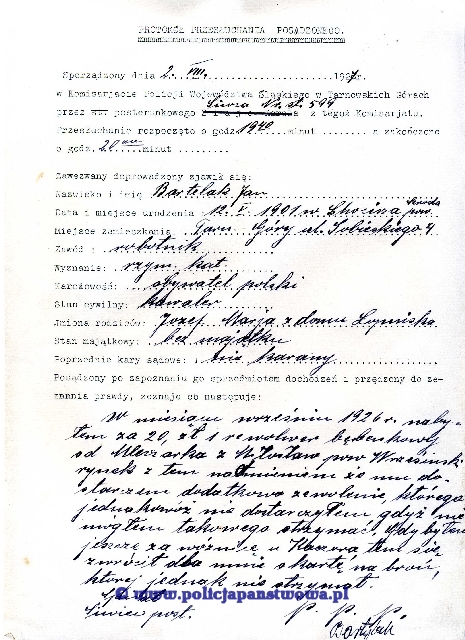 PROTOKÓŁ PRZESŁUCHANIA POSĄDZONEGO.
Sporządzony dnia 2. VIII. 1927r.
w Komisarjacie Policji Województwa Śląskiego w Tarnowskich Górach
przez posterunkowego Nr. sł. 594 z tegoż Komisarjatu.
Przesłuchanie rozpoczęto o godz. 19 40 minut ........ a zakończono
o godz. 20 minut ........
Zawezwany doprowadzony zjawił się:
Nazwisko i imię Bartelak Jan
Data i miejsce urodzenia 12. I. 1901 w pow
Miejsce zamieszkania Tarn Góry ul. Sobieskiego 4
Zawód: robotnik
Wyznanie: rzym kat.
Narodowość: obywatel polski
Stan cywilny: kawaler
Imiona rodziców: Józef Marja z domu
Stan majątkowy: bez majątku
Poprzednie kary sądowe: karany
Posądzony po zapoznaniu go sprzedmiotem dochodzeń i przędzony do ze-
znania prawdy, zeznaje co następuje:
W miesiącu wrześniu 1926 r. naby-
łem za 20, zł 1 rewolwer bębenkowy
od Mleczarka z pow Wrzesiński
z tem nadmieniem że mu do-
starczem dodatkowo zezwolenie, którego
jednakowoż nie dostarczyłem gdyż nie
mogłem takowego otrzymać. Gdy byłem
jeszcze za woźnicę u tem się
zwrócił dla mnie o kartę na broń,
której jednak nie otrzymał.
© www.policjapanstwowa.pl
post. p. p. p.
Bartelak